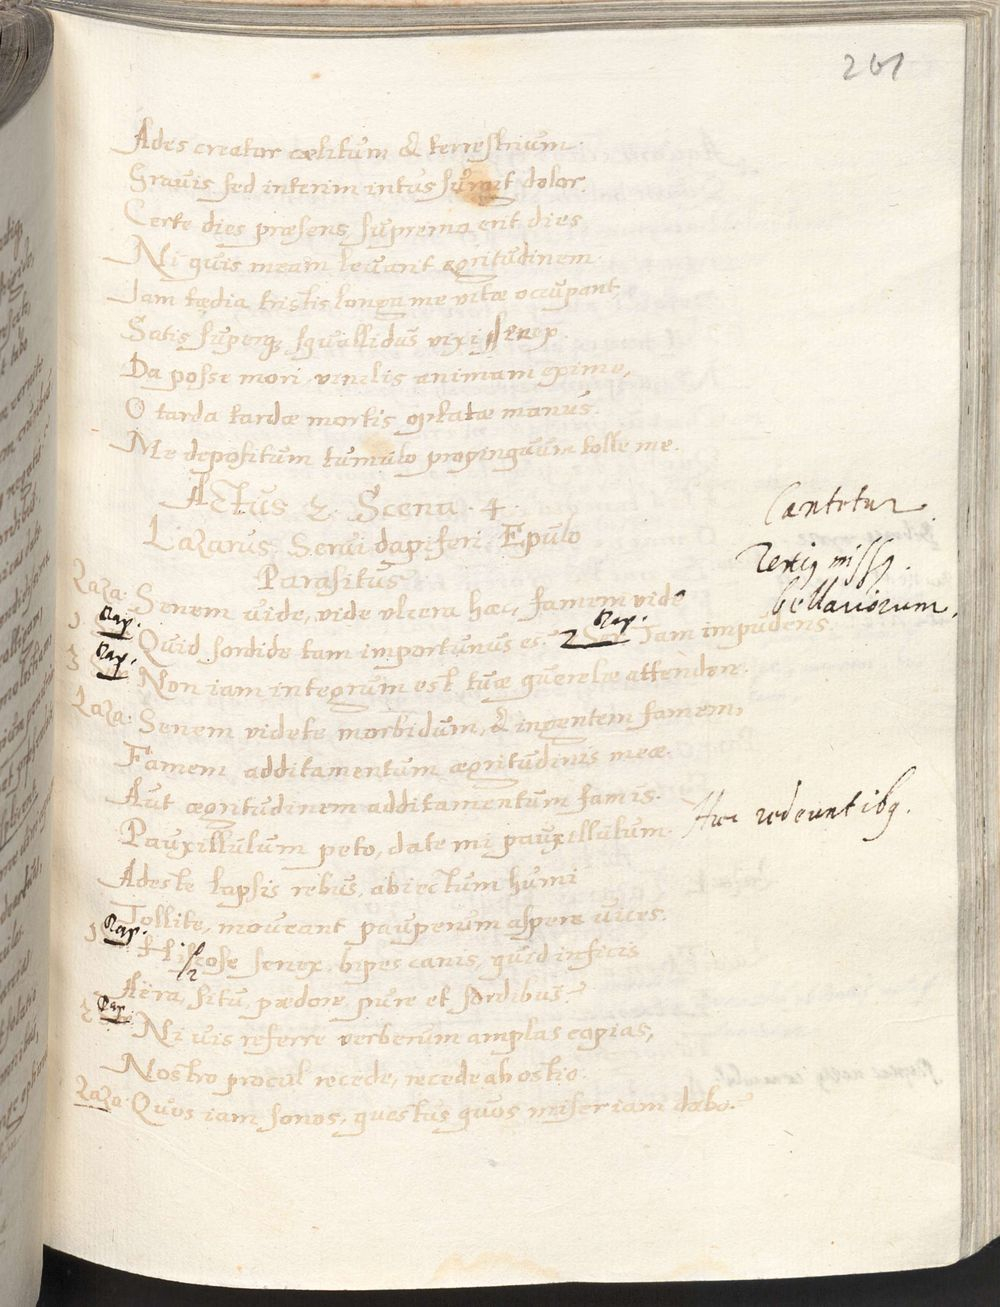 261
Ades creator cælitum & terrestrium.
Grauis sed interim intus surgit dolor.
Certe dies præsens suprema erit dies
Ni quis meam leuarit ægritudinem.
Jam tædia tristis longa me vitæ occupant,
Satis superq, squallidus vixi senex
Da posse mori, venelis animam exime,
O tarda tardæ mortis optatæ manus.
Me depositum tumulo propinquum tolle me.
Actus 2. Scena. 4.
Lazarus. Serui dapiferi. Epulo
Parasitus
Cantetur
Tertiq missq.
bellariorum.
Laza. Senem uide, vide vlcera hæc, famem vide
1 Dap. Quid sordide tam importunus es? 2 Dap. Iam impudens.
3 Dap. Non iam integrum est tuæ querelæ attendere.
Laza. Senem videte morbidum, & ingentem famem,
Famem additamentum ægritudinis meæ.
Aut ægritudinem additamentum famis.
Pauxillulum peto, date mi pauxillulum.
Huc redeuntibq.
Adeste lapsis rebus, abiectum humi
Tollite, moueant pauperum asperæ uices.
1 Dap. Hiscose senex, bipes canis, quid inficis
Aëra, situ, pædore, pure et sordibus?
2 Dap. Ni uis referre verberum amplas copias,
Nostro procul recede, recede ab ostio.
Laza. Quos iam sonos, questus quos miser iam dabo.